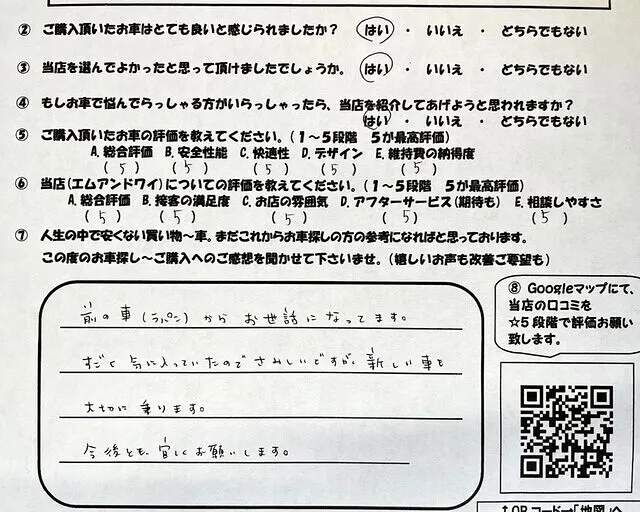 ② ご購入頂いたお車はとても良いと感じられましたか？ はい ・ いいえ ・ どちらでもない
③ 当店を選んでよかったと思って頂けましたでしょうか。 はい ・ いいえ ・ どちらでもない
④ もしお車で悩んでらっしゃる方がいらっしゃったら、当店を紹介してあげようと思われますか？
はい ・ いいえ ・ どちらでもない
⑤ ご購入頂いたお車の評価を教えてください。（１～５段階 ５が最高評価）
A. 総合評価 B. 安全性能 C. 快適性 D. デザイン E. 維持費の納得度
（ 5 ） （ 5 ） （ 5 ） （ 5 ） （ 5 ）
⑥ 当店（エムアンドワイ）についての評価を教えてください。（１～５段階 ５が最高評価）
A. 総合評価 B. 接客の満足度 C. お店の雰囲気 D. アフターサービス（期待も） E. 相談しやすさ
（ 5 ） （ 5 ） （ 5 ） （ 5 ） （ 5 ）
⑦ 人生の中で安くない買い物～車。まだこれからお車探しの方の参考になればと思っております。
この度のお車探し～ご購入へのご感想を聞かせて下さいませ。（嬉しいお声も改善ご要望も）
前の車（ラパン）からお世話になってます。
すごく気に入っていたのでさみしいですが、新しい車を
大切に乗ります。
今後とも、宜しくお願いします。
⑧ Googleマップにて、
当店の口コミを
☆５段階で評価お願い
致します。
↑QRコード→「地図」へ